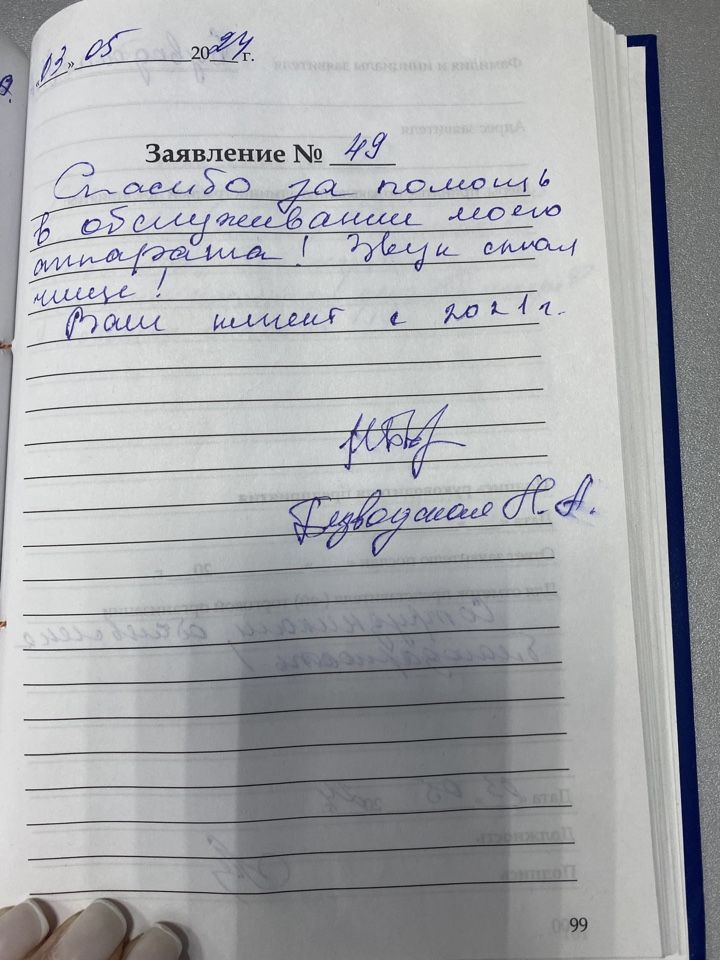 «03» 05 2024 г.
Заявление № 49
Спасибо за помощь
в обслуживании моего
аппарата! Звук стал
чище!
Ваш клиент с 2021 г.
Безводская Н. А.
99